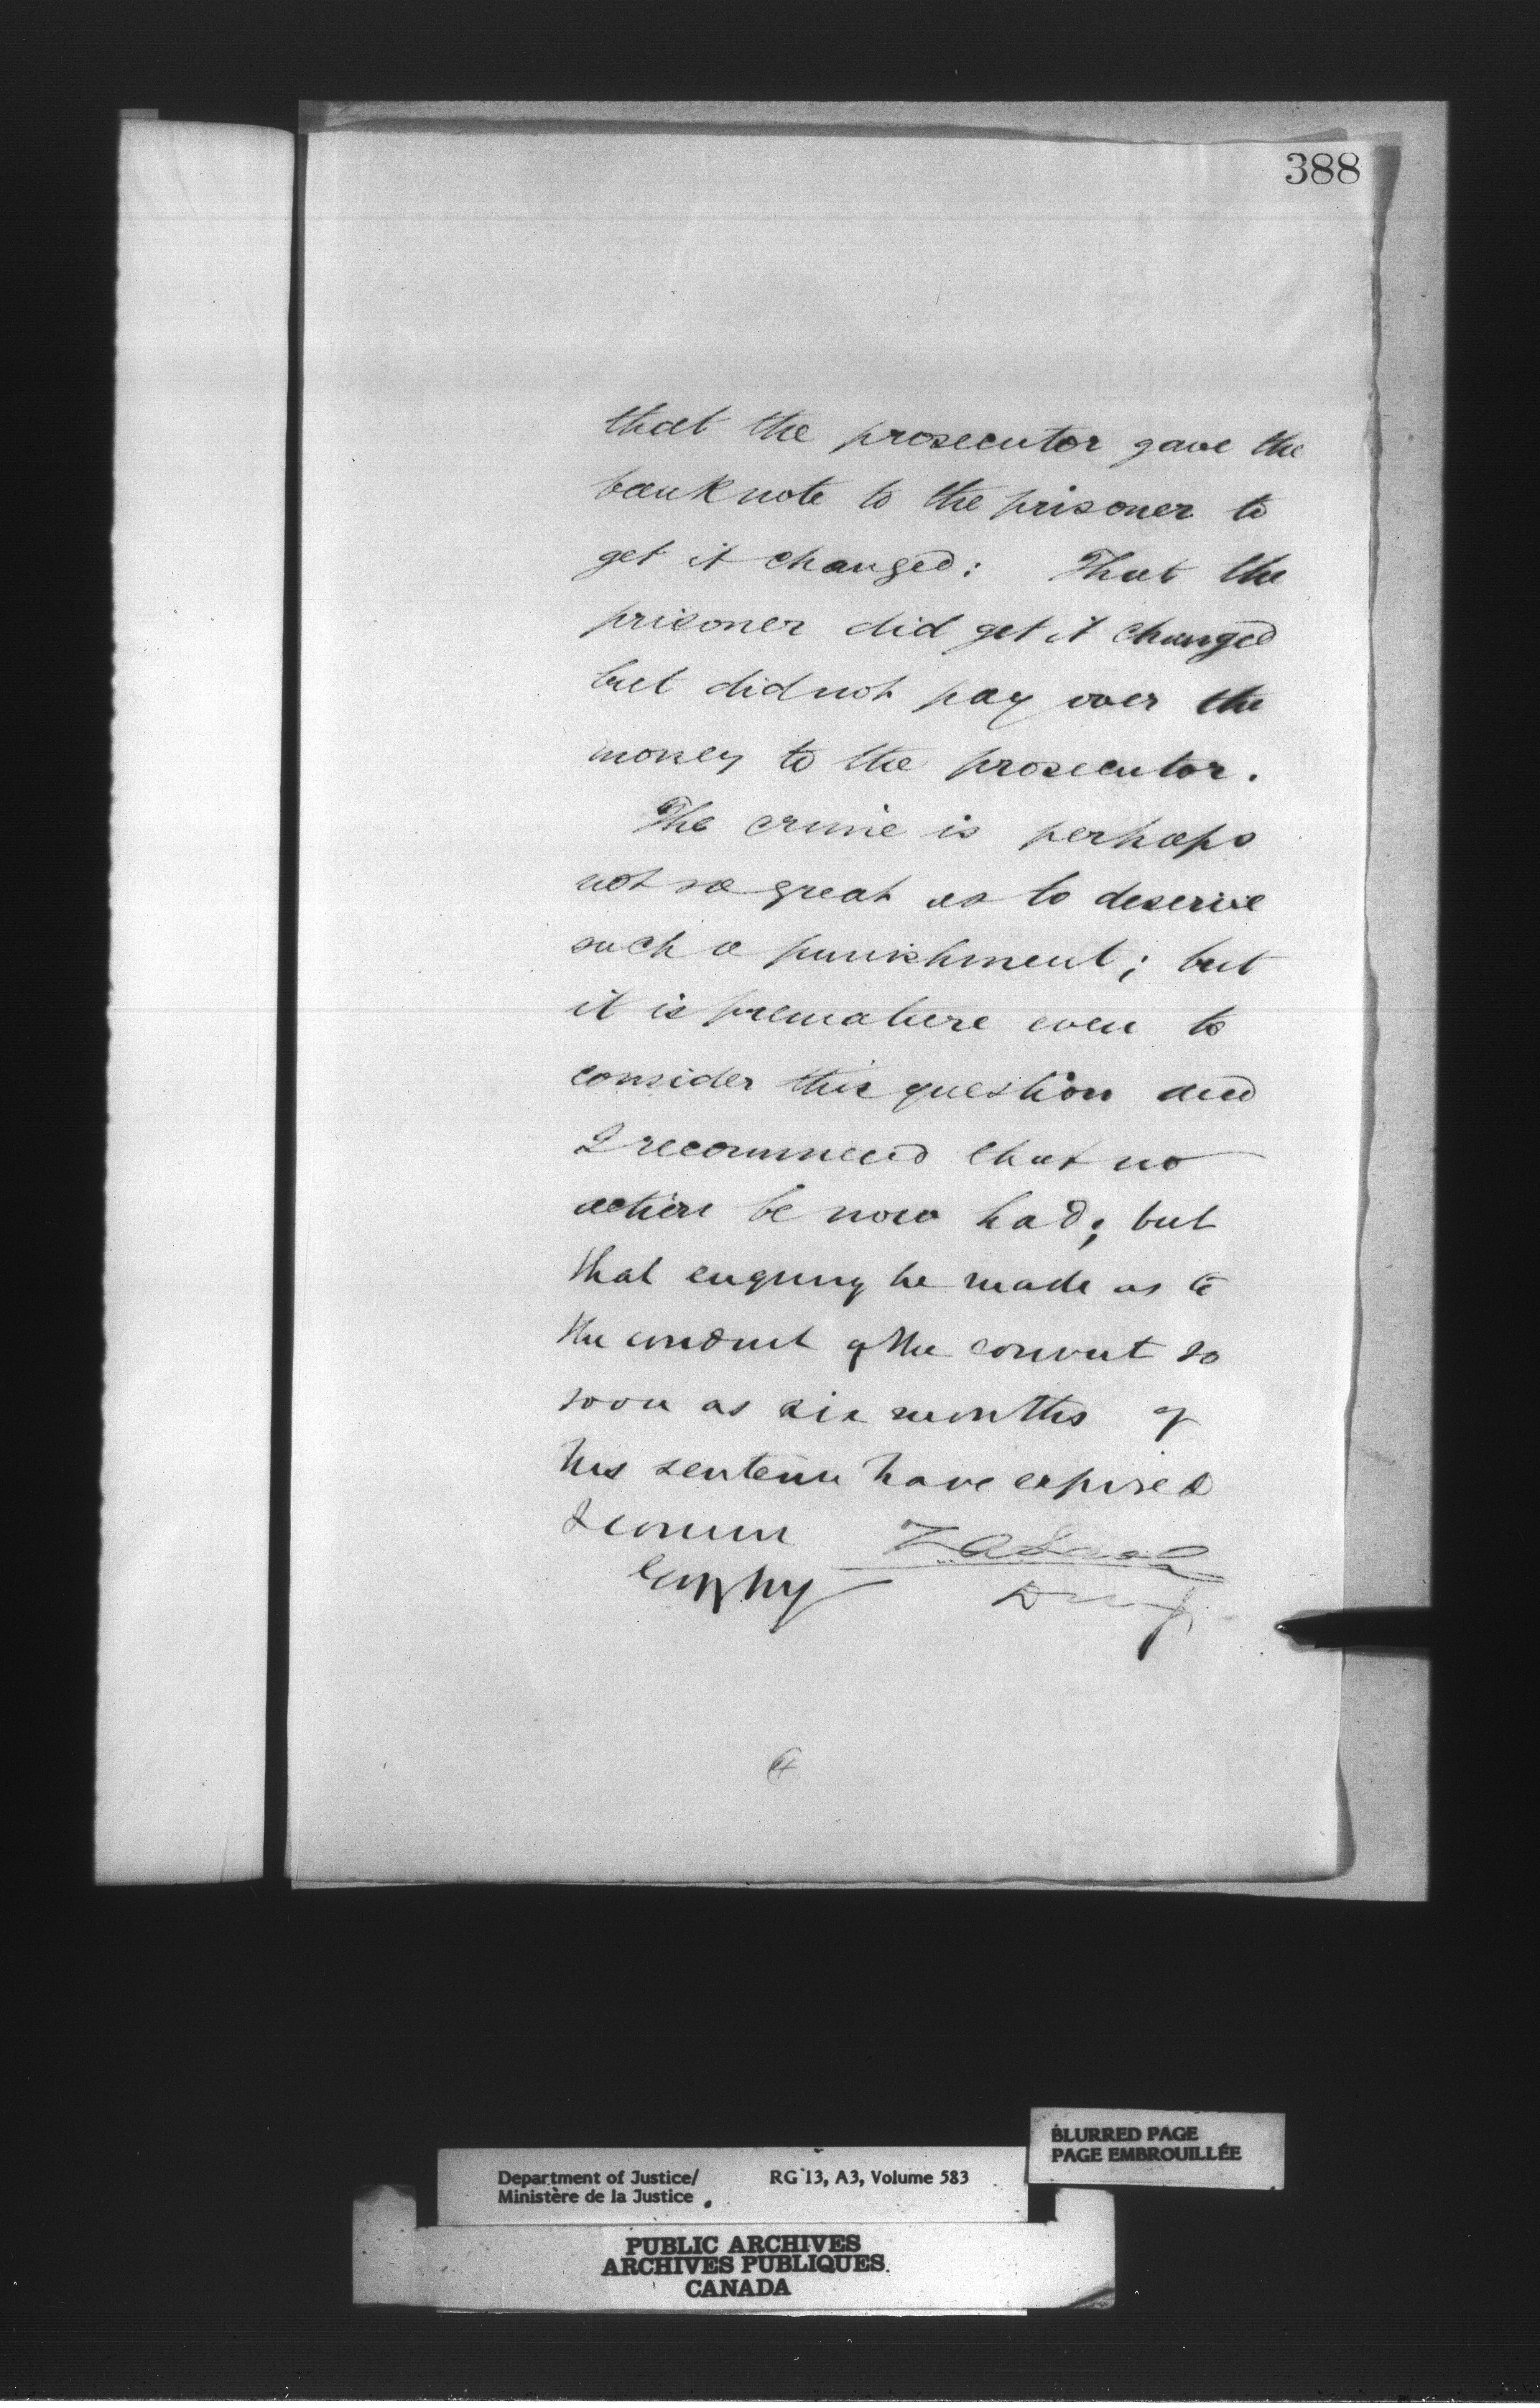 388
that the prosecutor gave the
bank note to the prisoner to
get it changed: That the
prisoner did get it changed
but did not pay over the
money to the prosecutor.
The crime is perhaps
not so great as to deserve
such a punishment; but
it is premature even to
consider this question and
I recommend that no
action be now had; but
that enquiry be made as to
the conduct of the convict so
soon as six months of
his sentence have expired
I concur Z A Lash
D M J
BLURRED PAGE
PAGE EMBROUILLÉE
Department of Justice/ RG 13, A3, Volume 583
Ministère de la Justice
PUBLIC ARCHIVES
ARCHIVES PUBLIQUES
CANADA